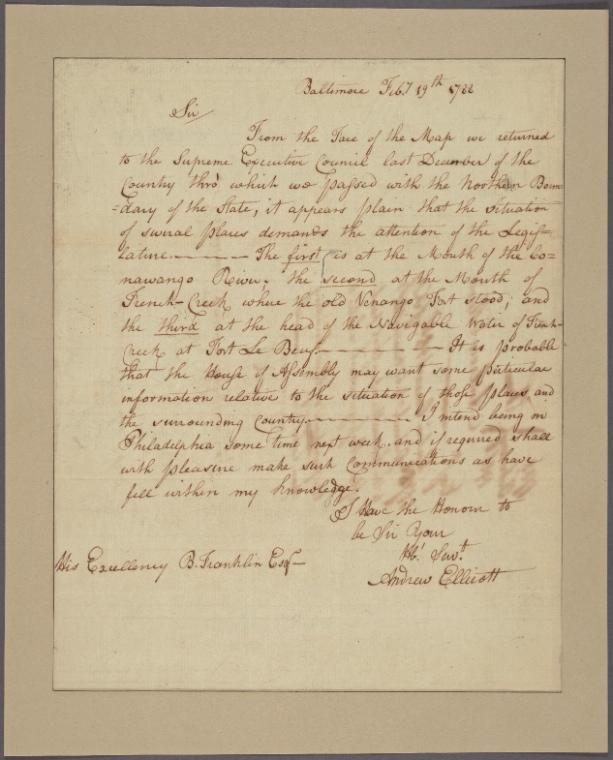 Baltimore Feby 19th 1788
Sir
From the Face of the Map we returned
to the Supreme Executive Council last December of the
Country thro' which we passed with the Northern Boun
=dary of the State, it appears plain that the Situation
of several places demands the attention of the Legis=
lature.———— The first is at the Mouth of the Co=
nawango River; the second at the Mouth of
French-Creek where the old Venango Fort stood; and
the third at the head of the Navigable Water of French-
Creek at Fort Le Beuf.———— It is probable
that the House of Assembly may want some particular
information relative to the situation of those places and
the surrounding Country.———— I intend being in
Philadelphia some time next week and if required shall
with pleasure make such Communications as have
fell within my knowledge.
I Have the Honour to
be Sir Your
Hble Servt
Andrew Ellicott
His Excellency B. Franklin Esqr—